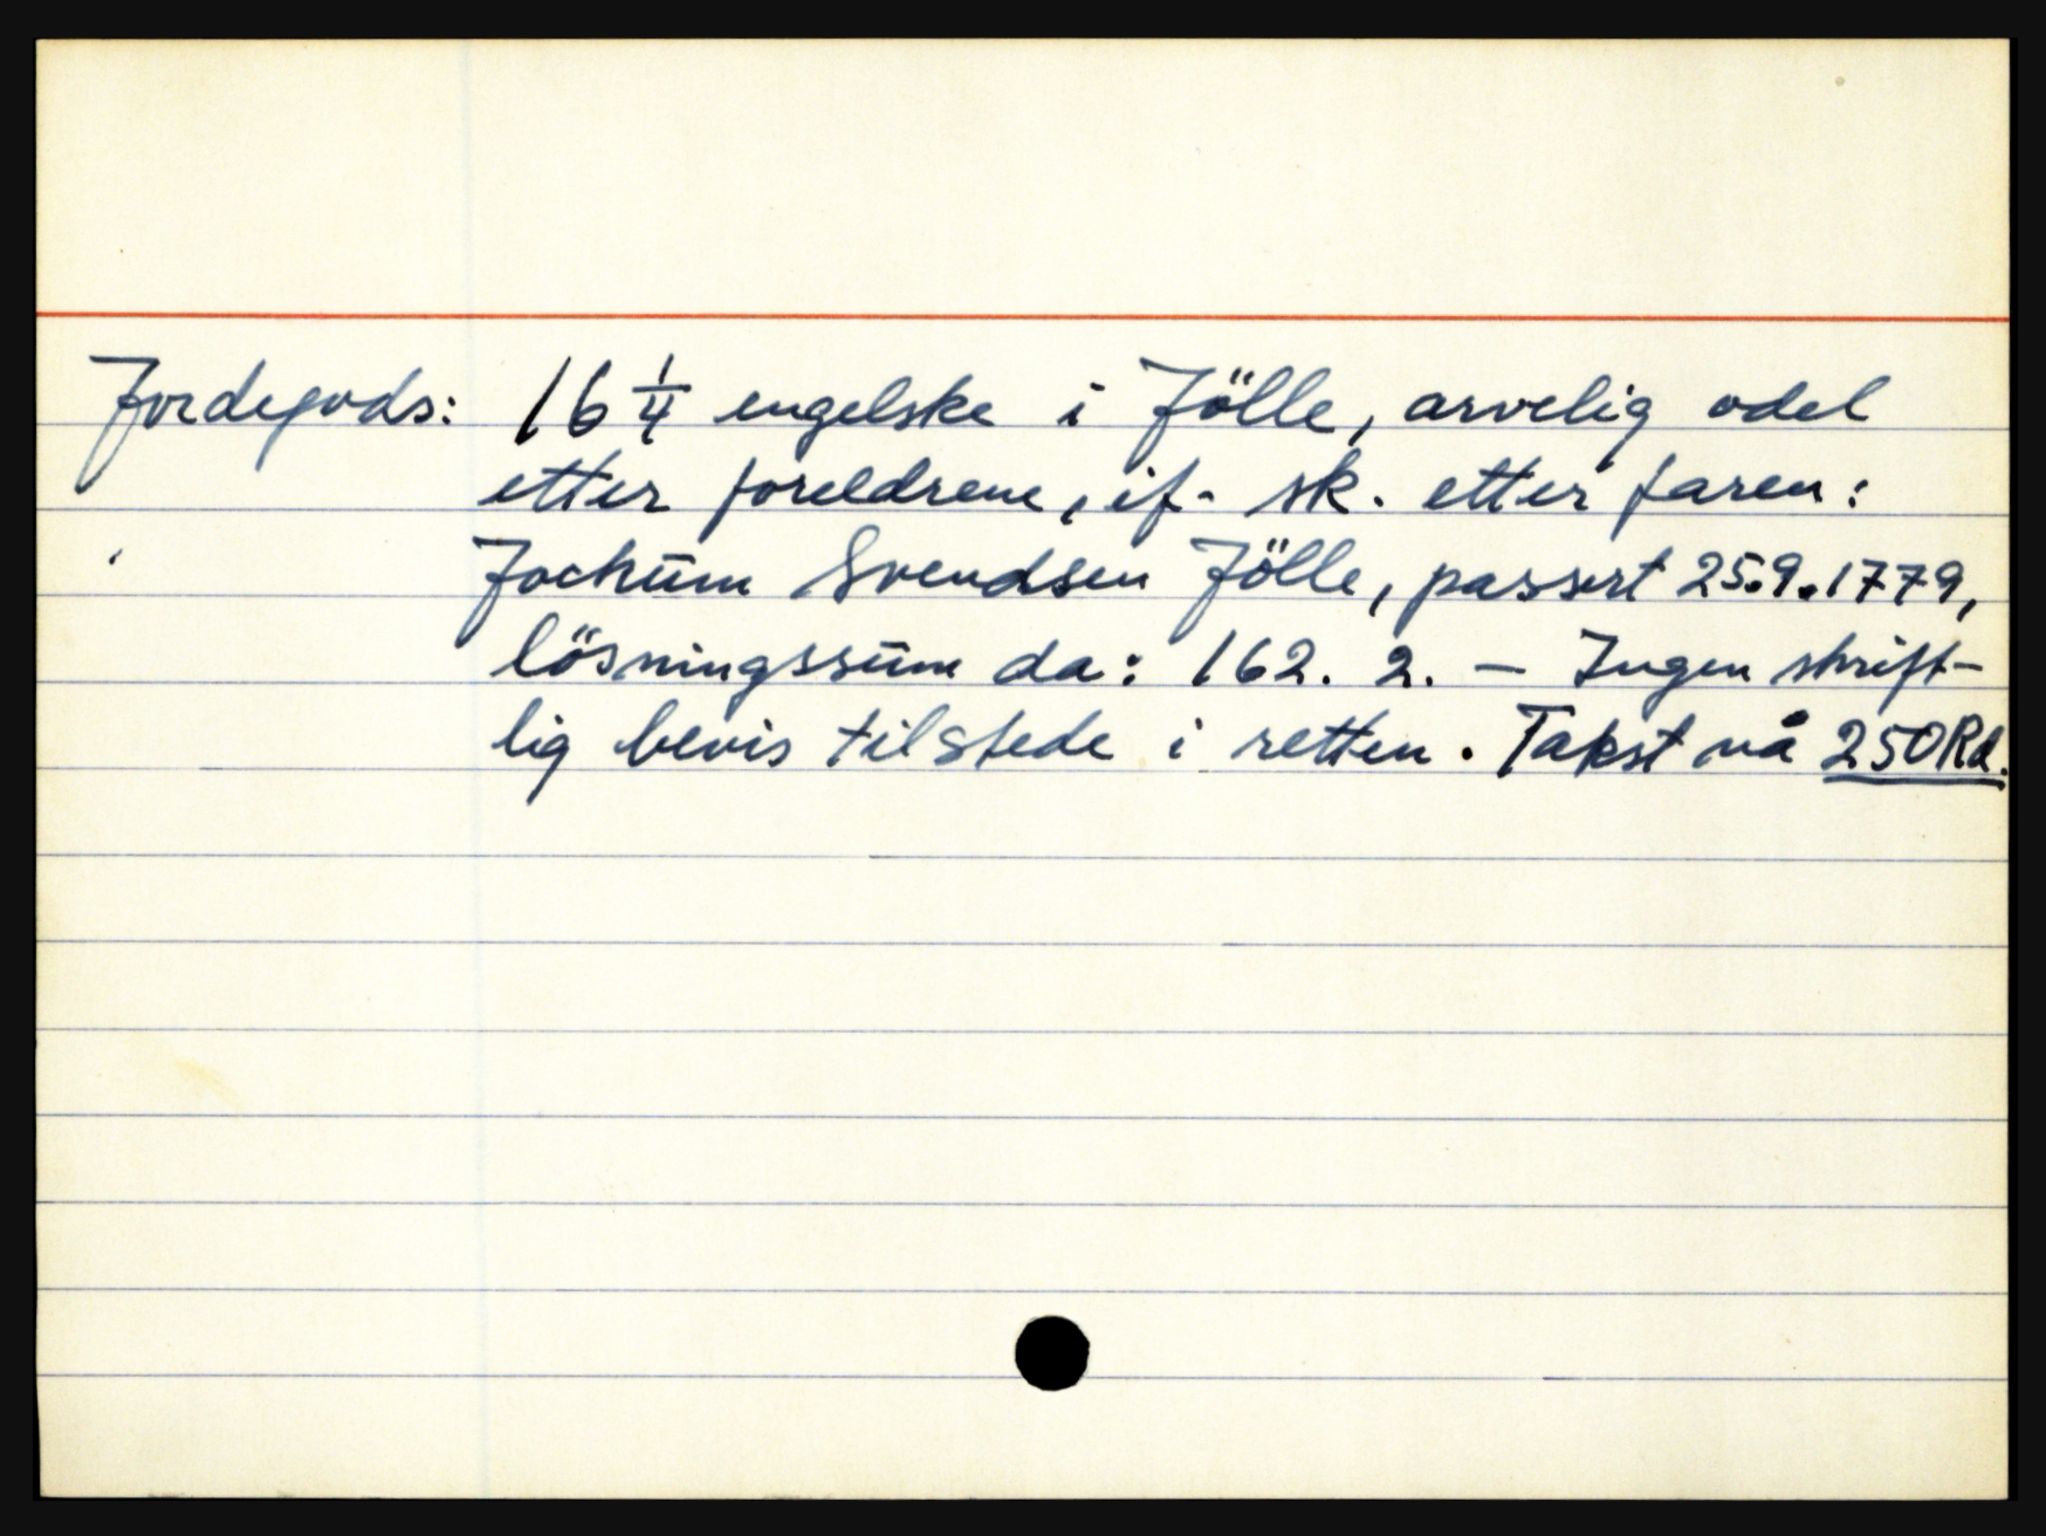 Jordegods: 16 1/4 engelske i Jölle, arvelig odel
etter foreldrene, if. sk. etter faren:
Jochum Svendsen Jölle, passert 25.9.1779,
lösningssum da: 162. 2. — Ingen skrift-
lig bevis tilstede i retten. Takst nå 250 Rd.